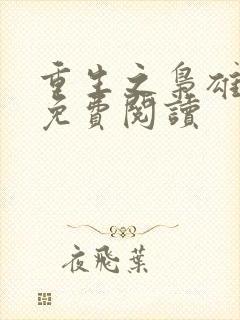 重生之梟雄
免費閱讀
夜飛葉